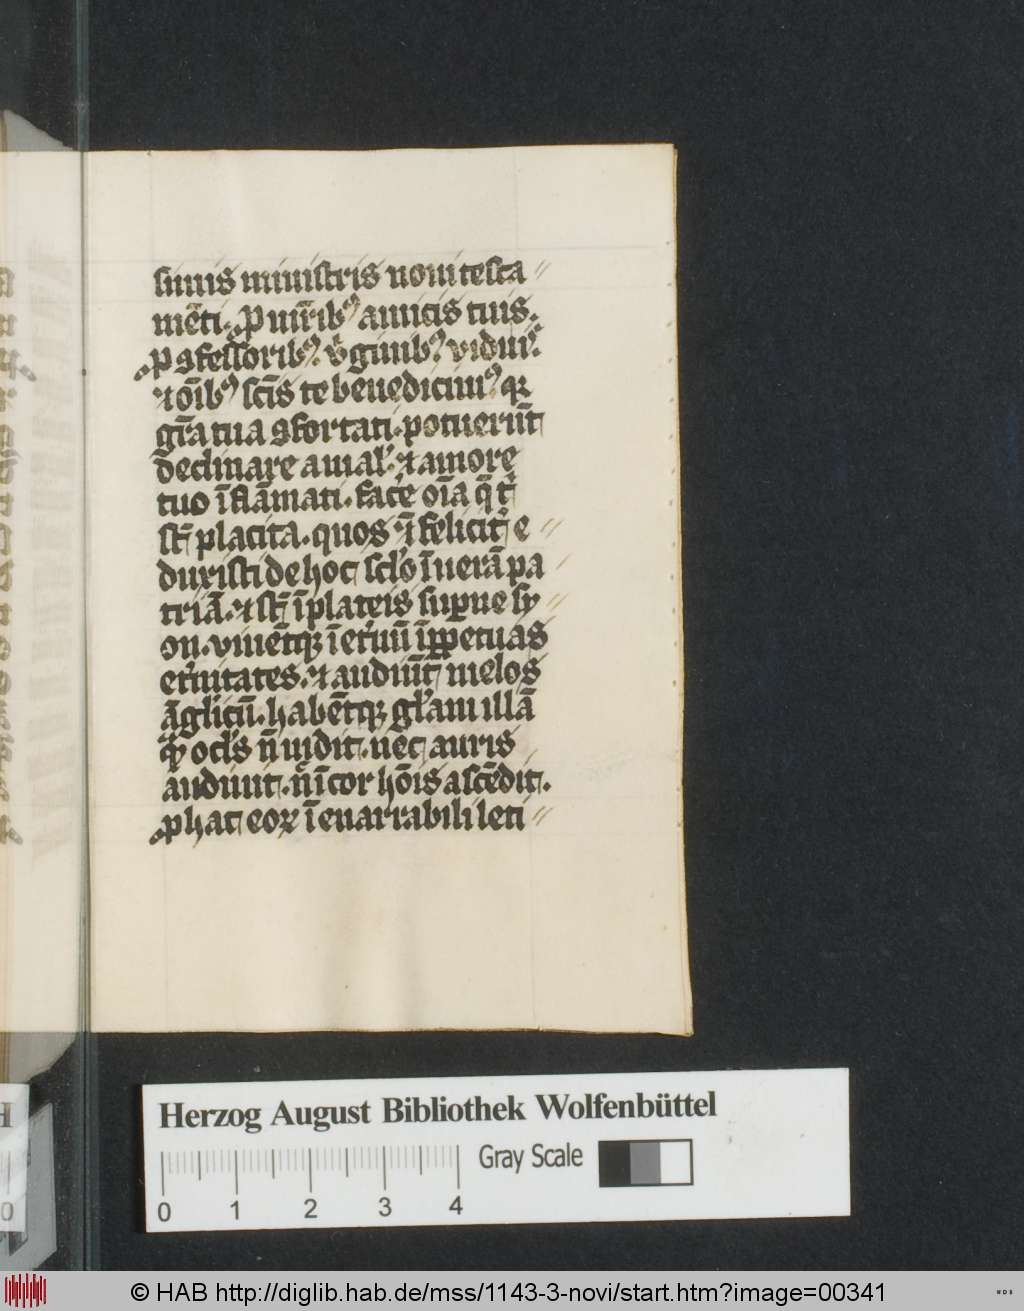 simis ministris noui testa
mēti. P mr̄ib⁹ amicis tuis.
P ꝯfessorib⁹. v̄ginib⁹. viduis.
⁊ oīb⁹ sc̄is te benedicim⁹ qꝛ
gr̄a tua ꝯfortati. potuerūt
declinare a mal'. ⁊ amore
tuo īflāmati. facē oīa q̄ t'
st̄ placita. quos ī felicit' e
duxisti de hoc sc̄lo ī uerā pa
triā. ⁊ st̄ ī plateis sup̄ne sy
on. viuētqꝫ ī et'nū ī ꝑpetuas
et'nitates. ⁊ audiūt melos
āglicū. habētqꝫ gl'am illā
quā ocl's n̄ uidit. nec auris
audiuit. n̄ ī cor hōis ascēdit.
P hac eoꝝ īenarrabili leti
Herzog August Bibliothek Wolfenbüttel
Gray Scale
0 1 2 3 4
© HAB http://diglib.hab.de/mss/1143-3-novi/start.htm?image=00341